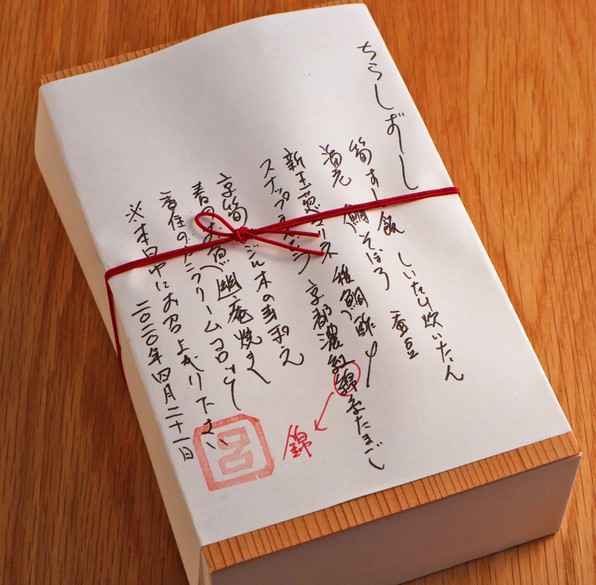 ちらしずーし
筍すし飯 しいたけ炊いたん
鯛そぼろ 蚕豆
海老 稚鯛酢〆
新玉葱 京都濃紅錦糸たまご
スナップえんどう
京筍 木の芽和え
春日 幽庵焼き
香住のカニクリームコロッケ
※本日中にお召し上がり下さい
二〇二〇年四月二十一日
錦
呂